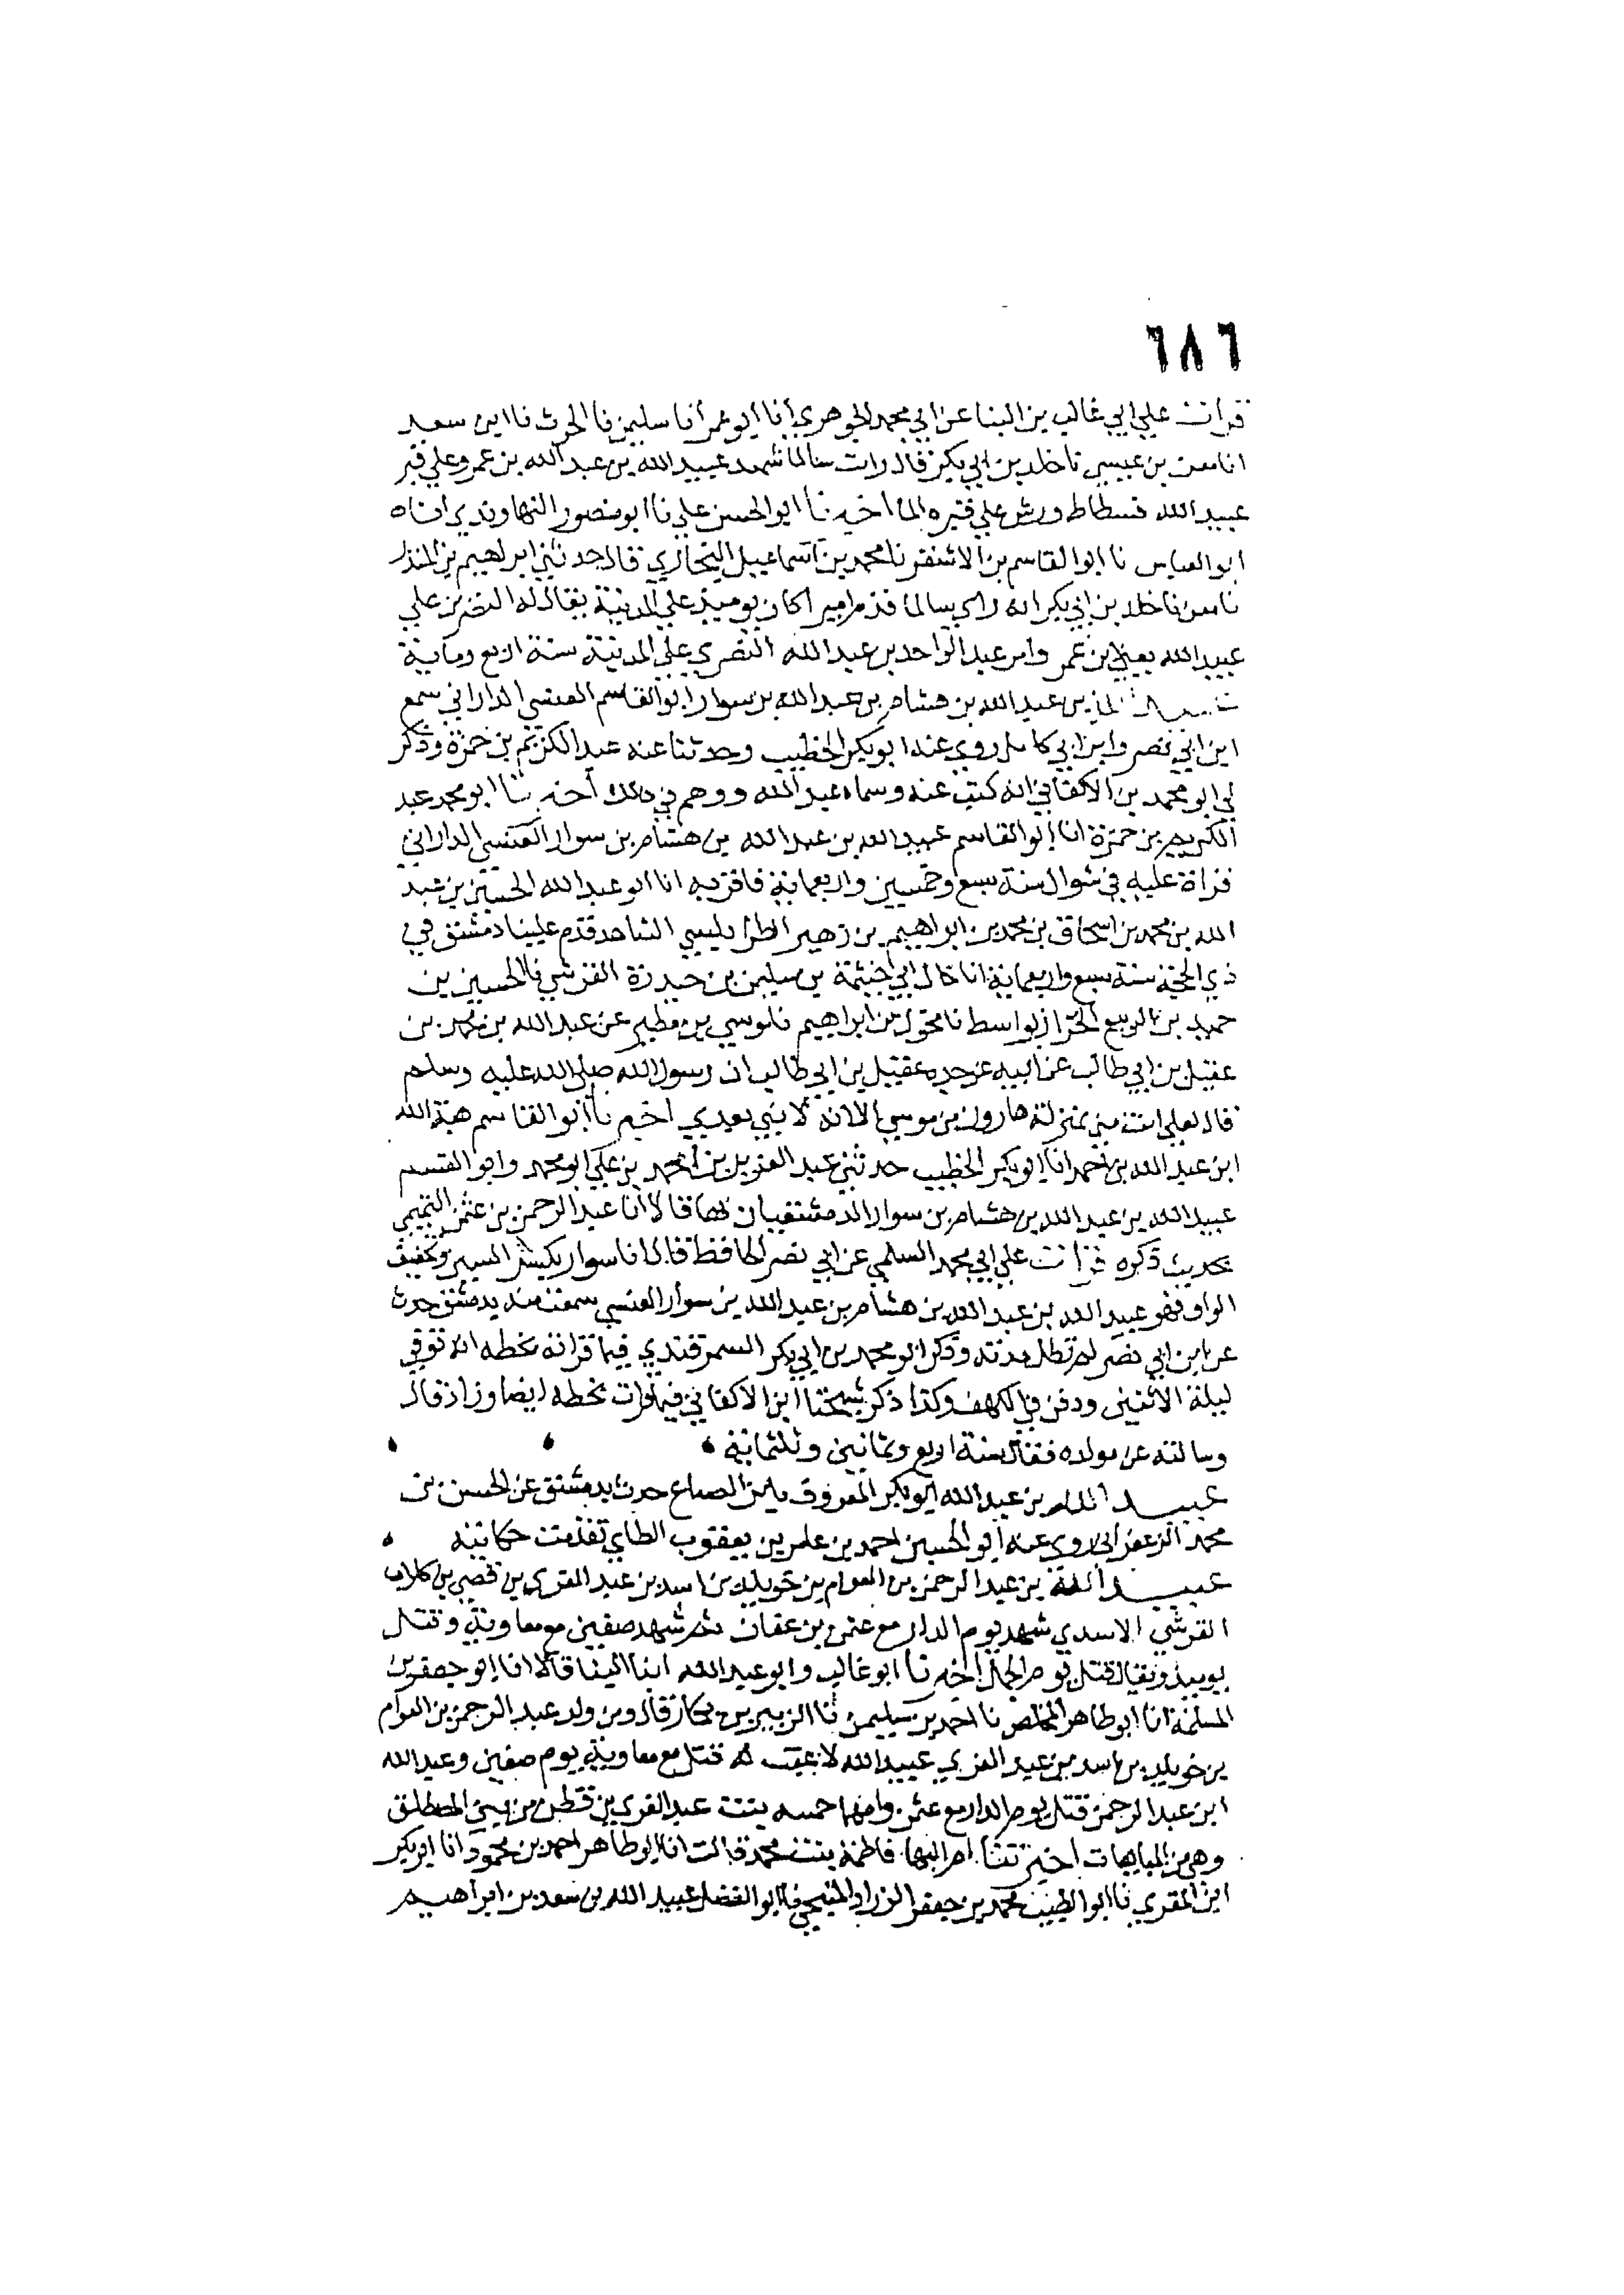 ٦٨٦
قرات علي ابي غالب بن البنا عن ابي محمد الجوهري أنا ابو عمر أنا سليمن نا الحرث نا ابن سعد
انا معن بن عيسي نا خالد بن ابي بكر قال رات سالما شهد عبيد الله بن عبد الله بن عمر وعلي قبر
عبيد الله فسطاط ورش علي قبره الما اخبرنا ابو الحسن علي نا ابو منصور النهاوندي انا
ابو العباس نا ابو القاسم بن الاشقر نا محمد بن اسماعيل البخاري قال حدثني ابرهيم بن المنذر
نا معن نا خالد بن ابي بكر انه راي سالما قدم امير ا كان يوميذ علي المدينة يقال له النضري علي
عبيد الله يعني ابن عمر وامر عبد الواحد بن عبد الله النضري علي المدينة سنة اربع وماية
عبيد الله بن عبد الله بن هشام بن عبد الله بن سوار ابو القاسم العنسي الداراني سمع
ابن ابي نصر وابن ابي كامل روي عنه ابو بكر الخطيب وحدثنا عنه عبد الكريم بن حمزة وذكر
لي ابو محمد بن الاكفاني انه كتب عنه وسماه عبد الله ووهم في ذلك أخبرنا ابو محمد عبد
الكريم بن حمزة انا ابو القاسم عبيد الله بن عبد الله بن هشام بن سوار العنسي الداراني
قراة عليه في شوال سنة سبع وخمسين واربعماية فاقر به انا ابو عبد الله الحسين بن عبد
الله بن محمد بن اسحاق بن محمد بن ابراهيم بن زهير الطرابلسي الشاهد قدم علينا دمشق في
ذي الحجة سنة سبع واربعماية انا خال ابي خيثمة بن سليمن بن حيدرة القرشي نا الحسين بن
حميد بن الربيع الخزاز بواسط نا مخول بن ابراهيم نا موسي بن مطير عن عبد الله بن محمد بن
عقيل بن ابي طالب عن ابيه عن جده عقيل بن ابي طالب ان رسول الله صلى الله عليه وسلم
قال لعلي انت مني بمنزلة هارون من موسي الا انه لا نبي بعدي اخبرنا أبو القاسم هبة الله
ابن عبد الله بن احمد انا ابو بكر الخطيب حدثني عبد العزيز بن أحمد بن علي ابو محمد وابو القسم
عبيد الله بن عبد الله بن هشام بن سوار الدمشقيان بها قالا أنا عبد الرحمن بن عثمن التميمي
بحديث ذكره قرات علي ابي محمد السلمي عن ابي نصر الحافظ قال اما سوار بكسر السين وتخفيف
الواو فهو عبيد الله بن عبد الله بن هشام بن عبد الله بن سوار العنسي سمعت منه بدمشق حدث
عن ابن ابي نصر لم تطل مدته وذكر ابو محمد بن ابي بكر السمرقندي فيما قراته بخطه انه توفي
ليلة الاثنين ودفن في الكهف وكذا ذكر شيخنا ابن الاكفاني فيما قرات بخطه ايضا وزاد قال
وسالته عن مولده فقال سنة اربع وثمانين وثلثماية
عبيد الله بن عبد الله ابو بكر المعروف بابن الصباغ حدث بدمشق عن الحسن بن
محمد الزعفراني روي عنه ابو الحسين احمد بن عامر بن يعقوب الطاي تقدمت حكايته
عبيد الله بن عبد الرحمن بن العوام بن خويلد بن اسد بن عبد العزي بن قصي بن كلاب
القرشي الاسدي شهد يوم الدار مع عثمن بن عفان ثم شهد صفين مع معاوية وقتل
يوميذ ويقال قتل يوم الجمل اخبرنا ابو غالب وابو عبد الله ابنا البنا قالا انا ابو جعفر بن
المسلمة انا ابو طاهر المخلص نا احمد بن سليمن نا الزبير بن بكار قال ومن ولد عبد الرحمن بن العوام
بن خويلد بن اسد بن عبد العزي عبيد الله لا عقب له قتل مع معاوية يوم صفين وعبد الله
ابن عبد الرحمن قتل يوم الدار مع عثمن وامهما حمسه بنت عبد العزي بن قطن من بني المصطلق
وهي من المبايعات اخبرتنا ام البها فاطمة بنت محمد قالت انا ابو طاهر احمد بن محمود انا ابو بكر
ابن المقري نا ابو الطيب محمد بن جعفر الزراد المنبجي نا ابو الفضل عبيد الله بن سعد بن ابراهيم